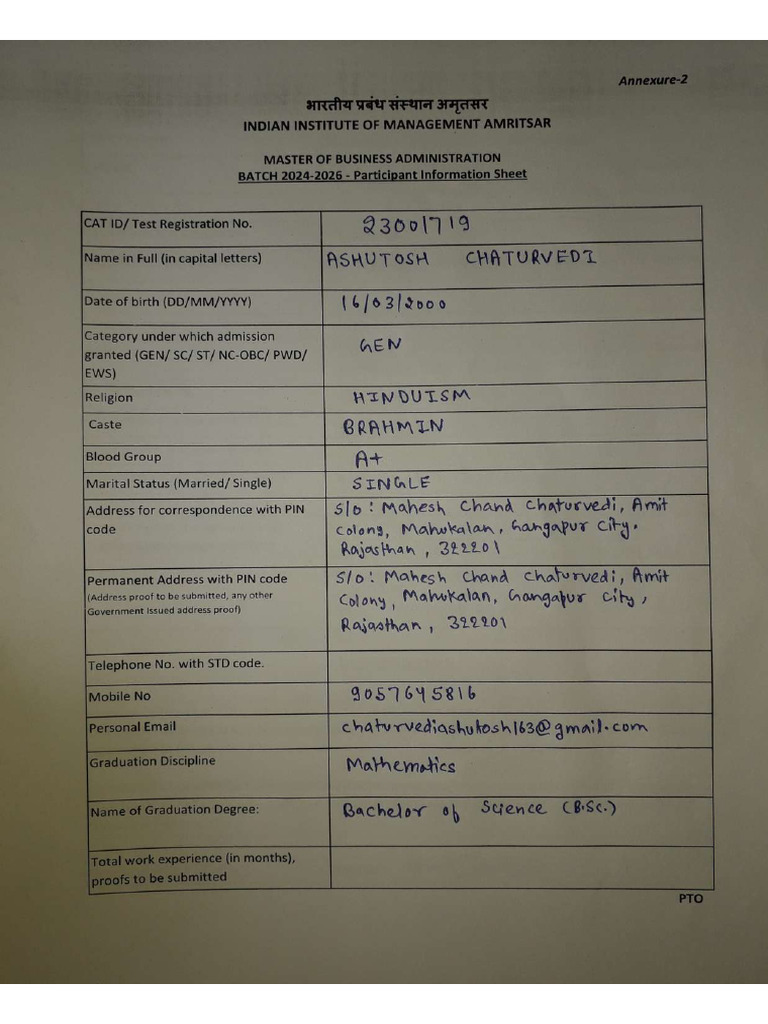 Annexure-2
भारतीय प्रबंध संस्थान अमृतसर
INDIAN INSTITUTE OF MANAGEMENT AMRITSAR
MASTER OF BUSINESS ADMINISTRATION
BATCH 2024-2026 - Participant Information Sheet
CAT ID/ Test Registration No. 23001719
Name in Full (in capital letters) ASHUTOSH CHATURVEDI
Date of birth (DD/MM/YYYY) 16/03/2000
Category under which admission
granted (GEN/ SC/ ST/ NC-OBC/ PWD/ GEN
EWS)
Religion HINDUISM
Caste BRAHMIN
Blood Group A+
Marital Status (Married/ Single) SINGLE
Address for correspondence with PIN S/O: Mahesh Chand Chaturvedi, Amit
code Colony, Mahukalan, Gangapur City.
Rajasthan, 322201
Permanent Address with PIN code S/O: Mahesh Chand Chaturvedi, Amit
(Address proof to be submitted, any other Colony, Mahukalan, Gangapur City,
Government Issued address proof) Rajasthan, 322201
Telephone No. with STD code.
Mobile No 9057645816
Personal Email chaturvediashutosh163@gmail.com
Graduation Discipline Mathematics
Name of Graduation Degree: Bachelor of Science (B.Sc.)
Total work experience (in months),
proofs to be submitted
PTO